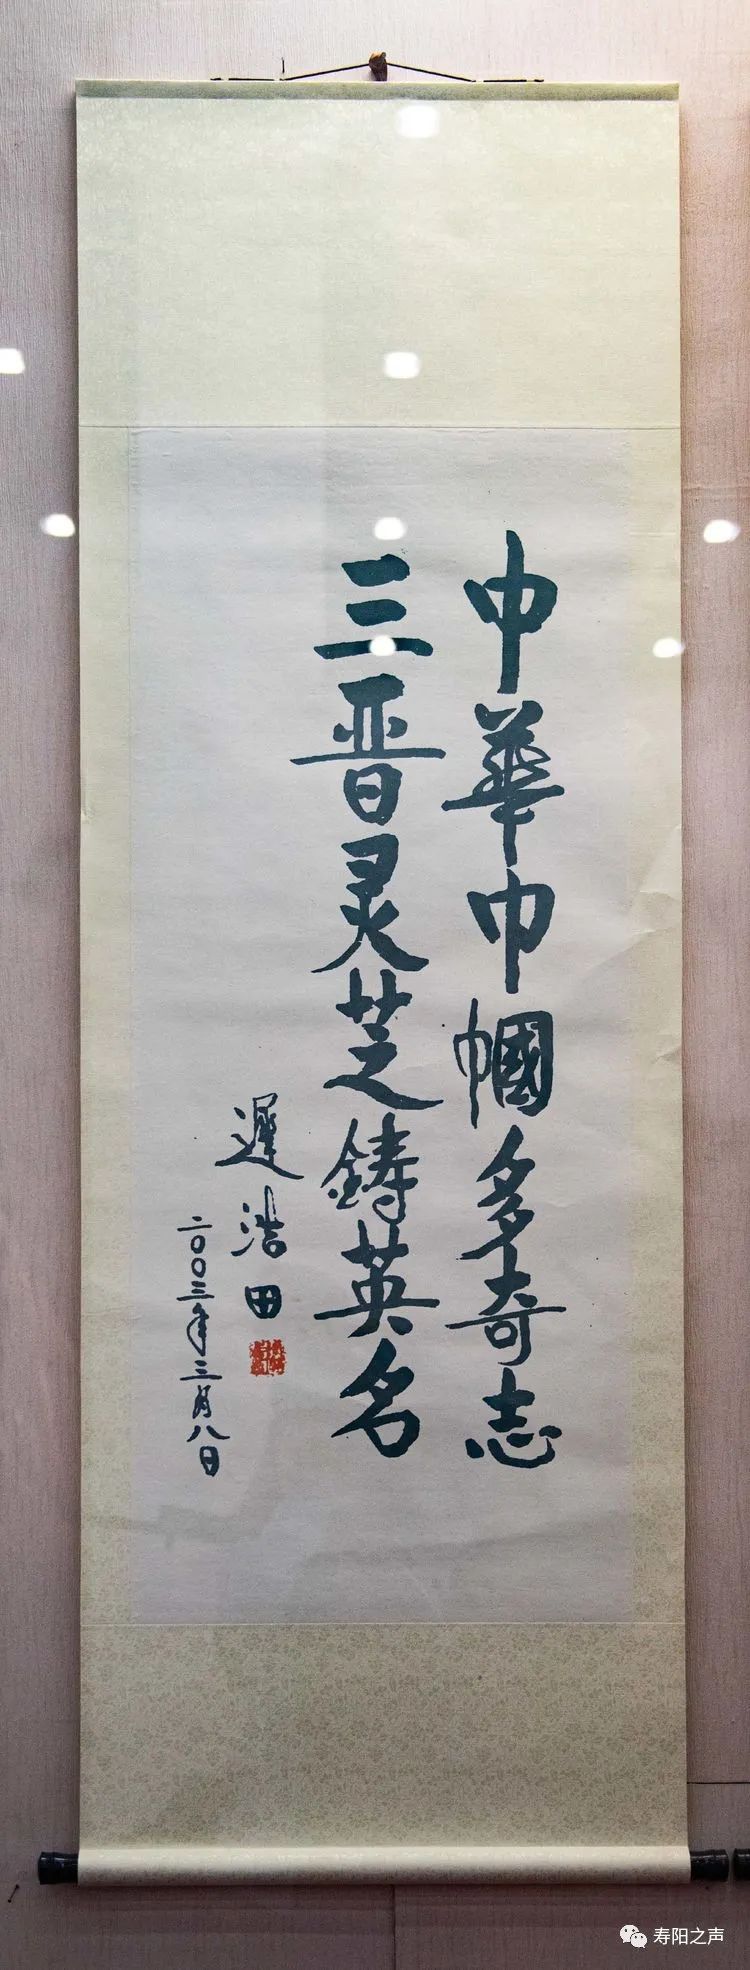 中華巾帼多奇志
三晋灵芝鋳英名
遲浩田
二〇〇三年三月八日
寿阳之声